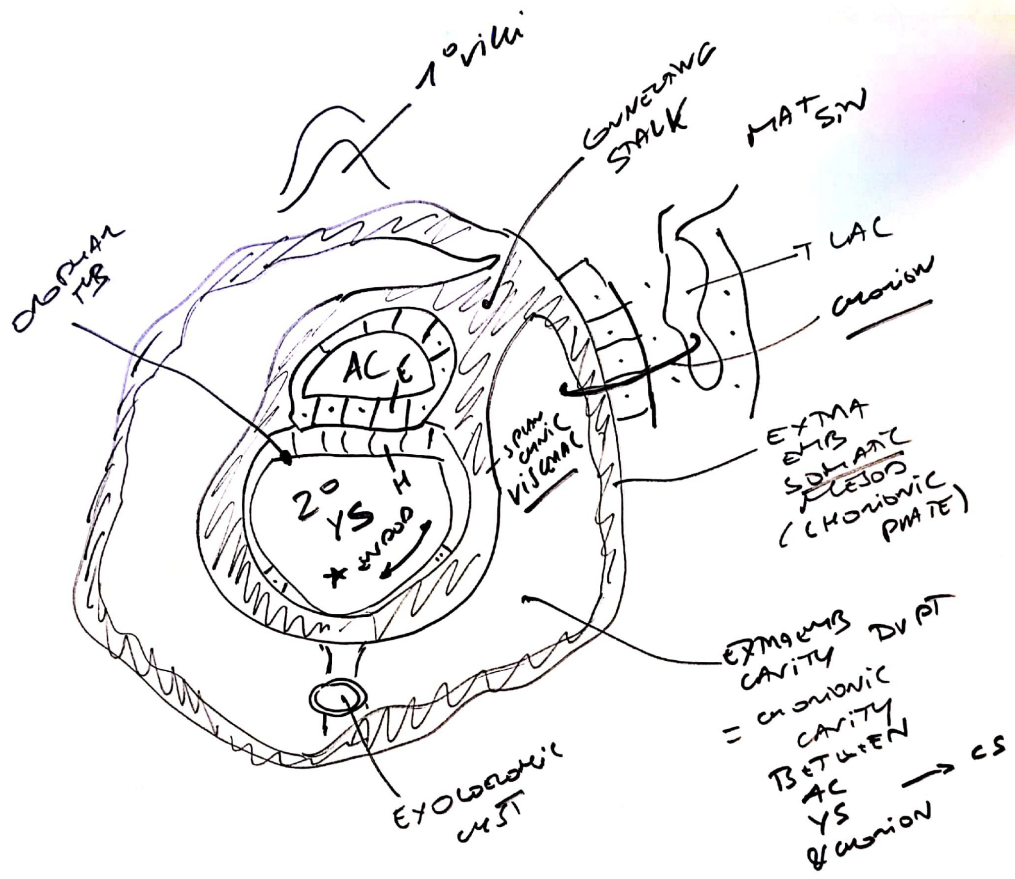 1° villi
CONNECTING
STALK
MAT
SIN
OROPHAR
MB
T LAC
CHORION
AC
E
SPLAN
CHNIC
VISCERAL
H
2°
YS
* ENDOD
EXTRA
EMB
SOMATIC
MESOD
(CHORIONIC
PLATE)
EXTRAEMB
CAVITY DVPT
= CHORIONIC
CAVITY
BETWEEN
AC
YS → CS
& CHORION
EXOCOELOMIC
CYST